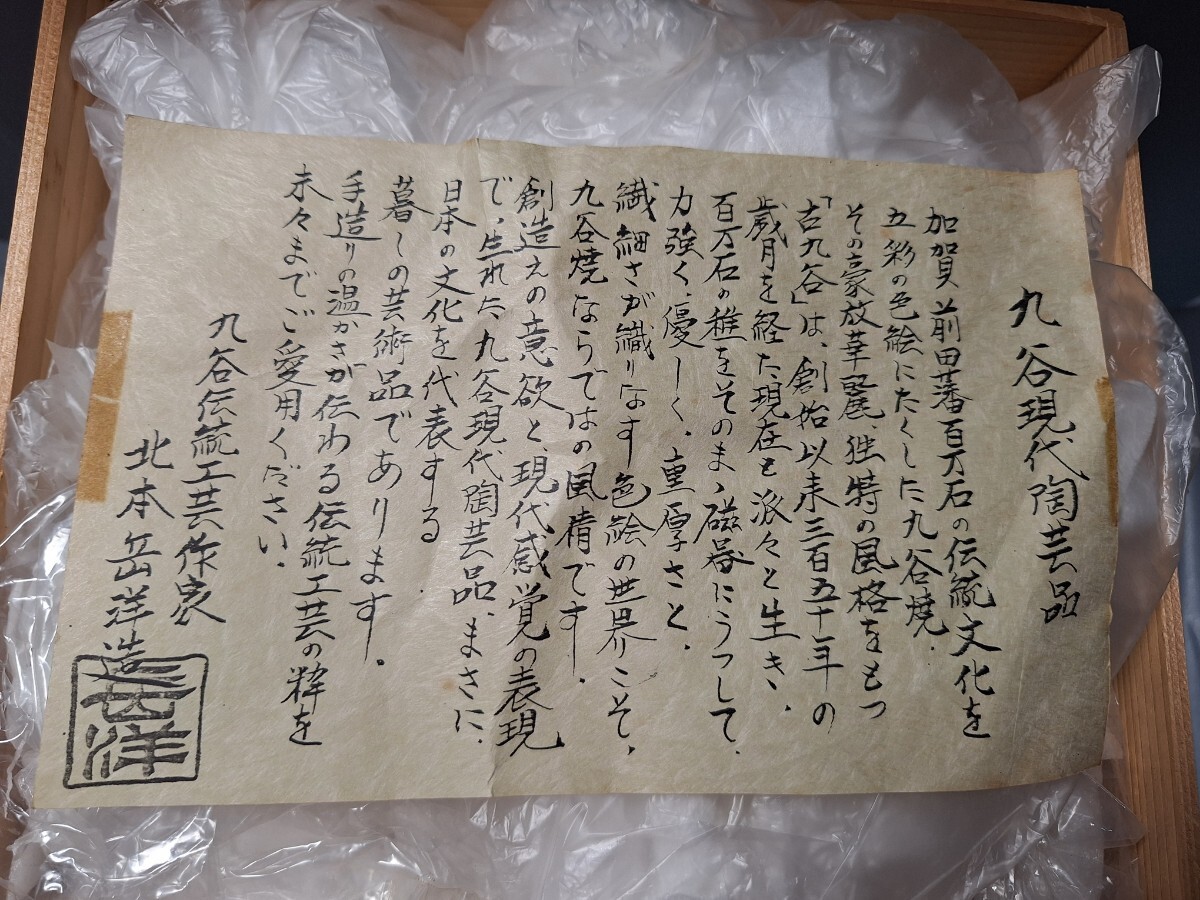 九谷現代陶芸品
加賀前田藩百万石の伝統文化を
五彩の色絵にたくした九谷焼.
その豪放華麗、独特の風格をもつ
「古九谷」は、創始以来三百五十年の
歳月を経た現在も派々と生き、
百万石の雅をそのまゝ磁器にうつして、
力強く、優しく、重厚さと、
繊細さが織りなす色絵の世界こそ、
九谷焼ならではの風情です.
創造えの意欲と、現代感覚の表現
で、生れた九谷現代陶芸品、まさに、
日本の文化を代表する
暮しの芸術品であります.
手造りの温かさが伝わる伝統工芸の粋を
末々までご愛用ください.
九谷伝統工芸作家
北本岳洋造
岳洋